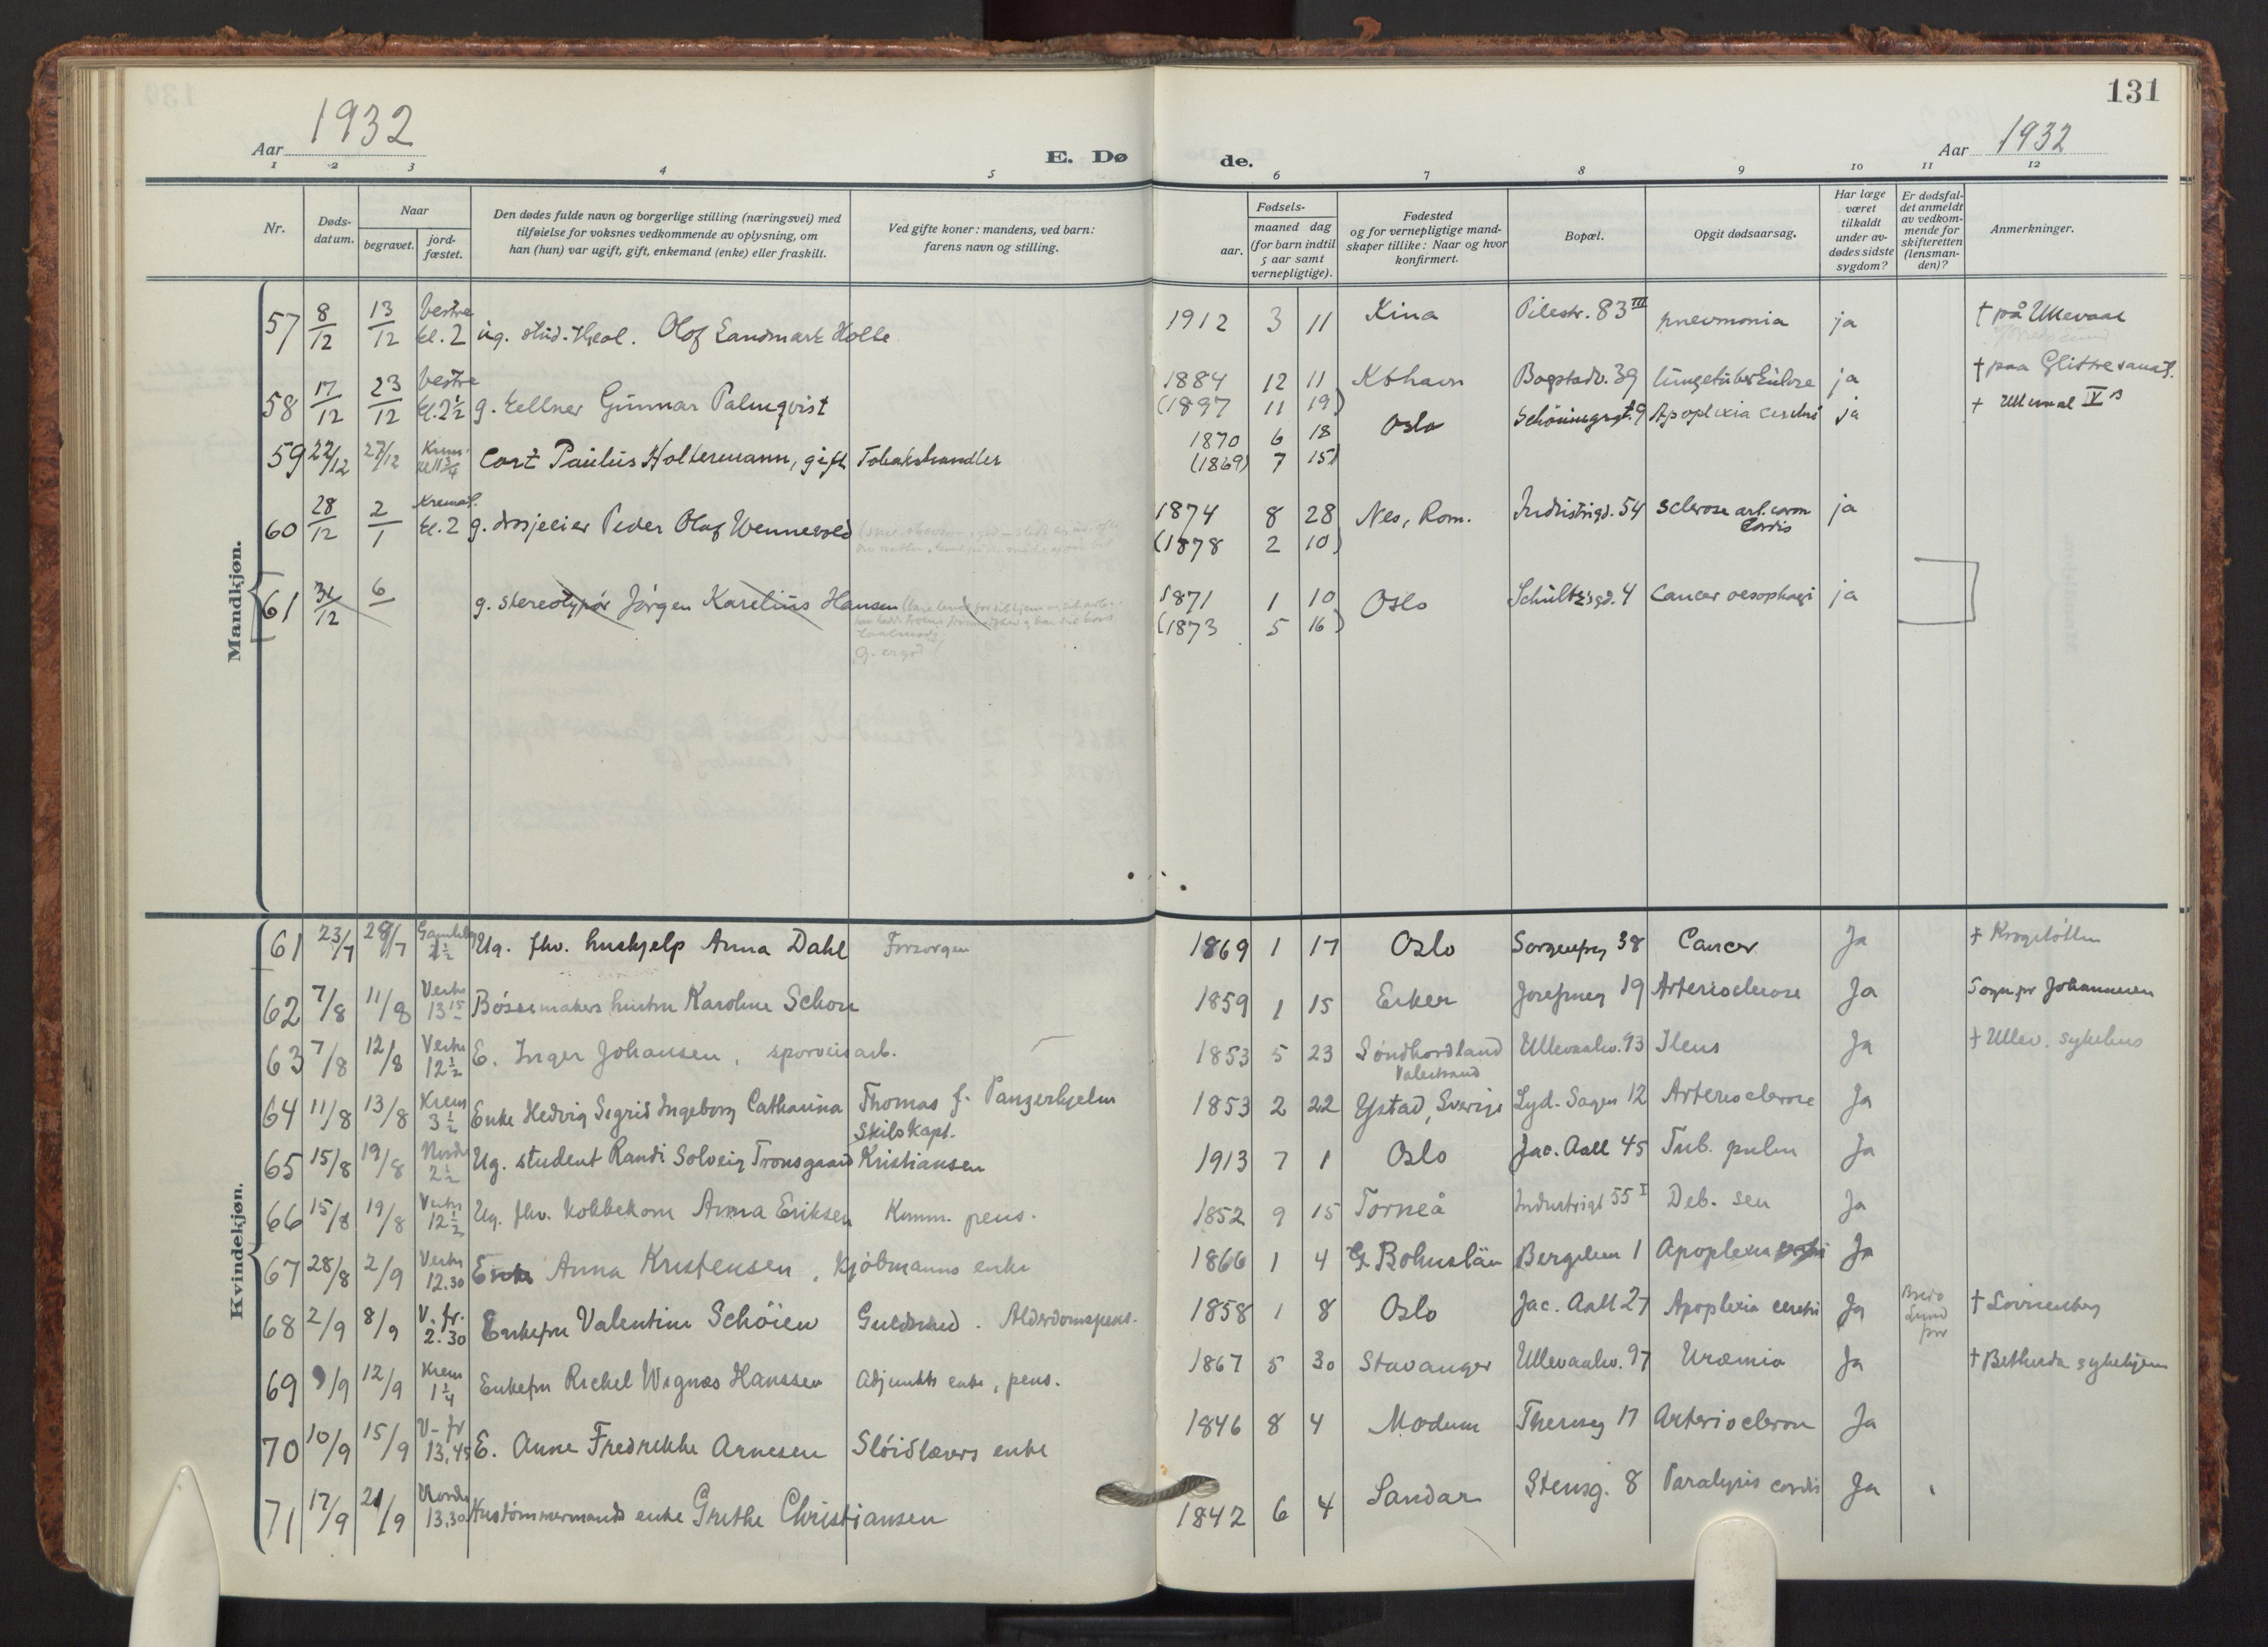 131
Aar 1932
E. Dø de.
Aar 1932
1 2 3 4 5 6 7 8 9 10 11 12
Nr.
Døds-
datum.
Naar
begravet.
jord-
fæstet.
Den dødes fulde navn og borgerlige stilling (næringsvei) med
tilføielse for voksnes vedkommende av oplysning, om
han (hun) var ugift, gift, enkemand (enke) eller fraskilt.
Ved gifte koner: mandens, ved barn:
farens navn og stilling.
Fødsels-
aar.
maaned dag
(for barn indtil
5 aar samt
vernepligtige).
Fødested
og for vernepligtige mand-
skaper tillike: Naar og hvor
konfirmert.
Bopæl.
Opgit dødsaarsag.
Har læge
været
tilkaldt
under av-
dødes sidste
sygdom?
Er dødsfal-
det anmeldt
av vedkom-
mende for
skifteretten
(lensman-
den)?
Anmerkninger.
Mandkjøn.
57 8/12 13/12 Vestre kl. 2 ug. stud. theol. Olof Landmark Holbe 1912 3 11 Kina Pilestr. 83 III pneumonia ja † på Ullevaal
58 17/12 23/12 Vestre kl. 2½ g. kellner Gunnar Palmqvist 1884 12 11 Kbhavn Bogstadv. 39 lungetuberkulose ja † paa Glitre sanat.
(1897 11 19)
59 22/12 27/12 Krem. Carl Paulus Holtermann, gift Tobakshandler 1870 6 18 Oslo Schøningsgt. 9 Apoplexia cerebri ja † Ullevaal IV
(1869) 7 15)
60 28/12 2/1 Kremat. kl. 2 g. drosjeeier Peder Olaf Wennevold 1874 8 28 Nes, Rom. Industrigd. 54 Sclerose art. coron cordis ja
(1878 2 10)
61 31/12 6/ g. stereotypør Jørgen Karelius Hansen 1871 1 10 Oslo Schultzsgd. 4 Cancer oesophagi ja
(1873 5 16)
Kvindekjøn.
61 23/7 28/7 Gamleby 2½ Ug. fhv. hushjelp Anna Dahl Forsorgen 1869 1 17 Oslo Sorgenfrig 38 Cancer Ja † Krogstøtten
62 7/8 11/8 Vestre 13 15 Bøssemakers hustru Karoline Schou 1859 1 15 Eker Josefineg 19 Arteriosclerose Ja Sogn pr Johanneren
63 7/8 12/8 Vestre 12½ E. Inger Johansen, sporveisarb. 1853 5 23 Søndhordland Valestrand Ullevaalsv. 93 Ileus Ja † Ullev. sykehus
64 11/8 13/8 Krem 3½ Enke Hedvig Sigrid Ingeborg Catharina Thomas f. Panzerhjelm Skibskapt. 1853 2 22 Ystad, Sverige Lyd. Sagen 12 Arteriosclerose Ja
65 15/8 19/8 Nordre 2½ Ug. student Randi Solveig Tronsgaard Kristiansen 1913 7 1 Oslo Jac. Aall 45 Tub. pulm Ja
66 15/8 19/8 Vestre 12½ Ug. fhv. kokkekone Anna Eriksen Komm. pens. 1852 9 15 Torneå Industrigt 55 I Deb. sen Ja
67 28/8 2/9 Vestre 12.30 Enke Anna Kristensen, Kjøbmanns enke 1866 1 4 G. Bohuslän Bergslien 1 Apoplexia Ja
68 2/9 8/9 V. fr. 2.30 Enkefru Valentine Schøien Guldsmed. Alderdomspens. 1858 1 8 Oslo Jac. Aall 27 Apoplexia cerebri Ja Bredo Lund prv † Lovisenberg
69 9/9 12/9 Krem 1¼ Enkefru Rickel Wignæs Hanssen Adjunkts enke, pens. 1867 5 30 Stavanger Ullevaalsv. 97 Uræmia Ja † Bethesda sykehjem
70 10/9 15/9 V. fr 13,45 E. Anne Fredrikke Arnesen Sløidlærers enke 1846 8 4 Modum Theresg 17 Arteriosclerose Ja
71 17/9 21/9 Nordre 13,30 Hustømmermands enke Grethe Christiansen 1842 6 4 Sandar Stensg. 8 Paralysis cordis Ja